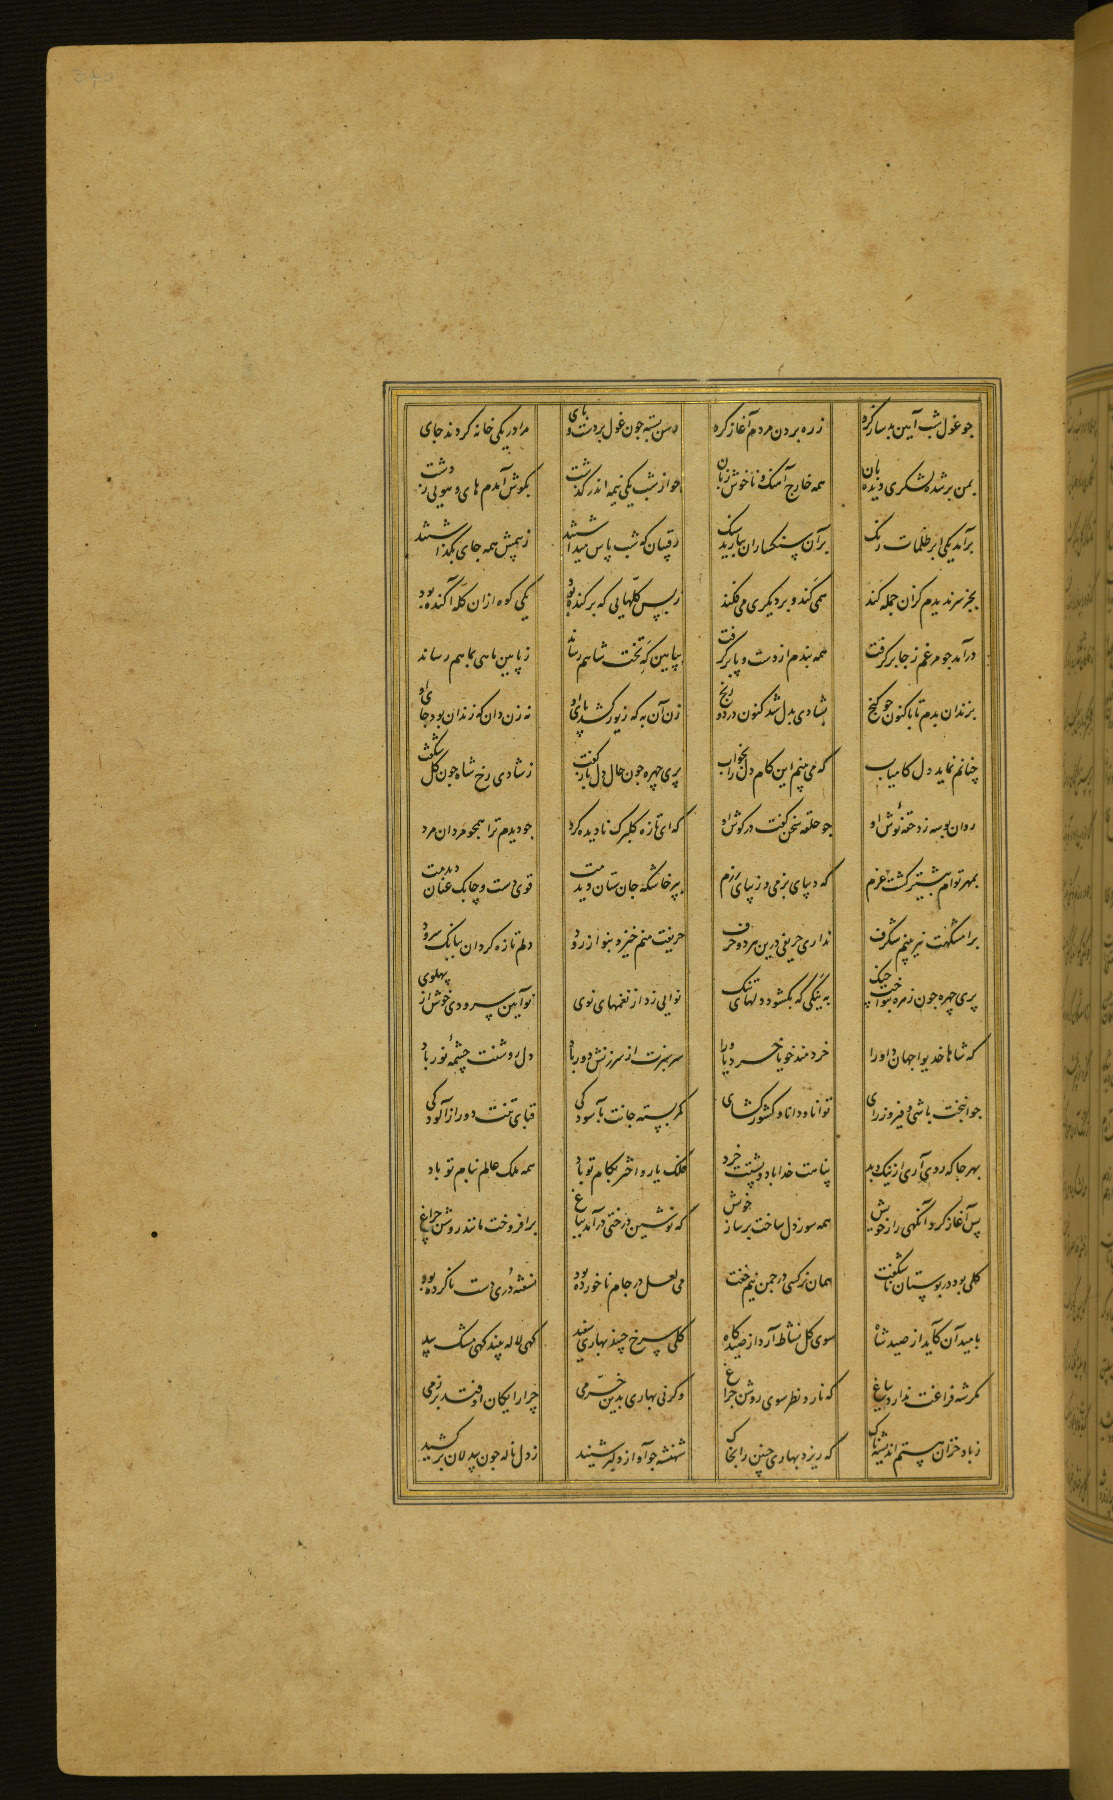 چو غول شب آیین بد ساز کرد زره بردن مردم آغاز کرد
من بسته چون غول بردست و پای مرا در یکی خانه کردند جای
بمن برشده لشکری دیده بان همه خارج آهنگ و ناخوش زبان
چو از شب یکی نیمه اندر گذشت بگوش آمدم های و هویی ز دشت
برآمد یکی ابر ظلمات رنگ برآن سنکساران ببارید سنگ
رقیبان که شب پاس میداشتند ز بیمش همه جای بگذاشتند
بجز سر ندیدم کزان جمله کند همی کند و بر دیگری می فکند
ز بس کلهایی که بر کنده بود یکی کوه از آن کله آکنده بود
درآمد چو مرغم ز جا برگرفت همه بندم از دست و پا برگرفت
بپایین که تخت شاهم رساند ز پایین ماهی بماهم رساند
بزندان بدم تا باکنون چو گنج بشادی بدل شد کنون درد و رنج
زن آن به که زیور کشد پای او نه زن دان که زندان بود جای او
چنانم نماید دل کامیاب که می بینم این کام دل را بخواب
پری چهره چون حال دل باز گفت ز شادی رخ شاه چون گل شکفت
روان بوسه زد حقهٔ نوش او چو حلقه سخن گفت در گوش او
که ای تازه گلبرک نادیده گرد چو دیدم ترا همچو مردان مرد
بمهر توام بیشتر گشت عزم که دیبای بزمی و زیبای رزم
بپرخاشگه جان ستان دیدمت قوی دست و چابک عنان دیدمت
برامشگهت نیز بینم شگرف نداری حریفی درین هر دو حرف
حریفت منم خیز و بنواز رود دلم تازه گردان ببانگ سرود
پری چهره چون زهره بنواخت چنگ به ینگی که بگشود دلهای تنگ
نوایی زد از نغمهای نوی نوآیین سرودی خوش از پهلوی
که شاها خدیوا جهان داورا خردمند خوبا خرد یاورا
سر سبزت از سرزنش دور باد دل روشنت چشمهٔ نور باد
جوانبخت باشی و فیروز رای توانا و دانا و کشور گشای
کمر بسته جانت بآسودگی قبای تنت دور از آلودگی
بهر جا که روی آری از نیک و بد پناهت خدا باد و پشتت خرد
فلک یار و اختر بکام تو باد همه ملک عالم بنام تو باد
پس آغاز کرد آنگهی راز خویش همه سوز دل ساخت بر ساز خویش
که نوشین درختی درآمد بباغ برافروخت مانند روشن چراغ
گلی بود در بوستان ناشکفت همان نرگسی در چمن نیم خفت
می لعل در جام ناخورده بود نسفته دری دست ناکرده بود
بامید آن کآید از صید شاه سوی گل نشاط آرد از صیدگاه
گلی سرخ چیند بهاری سفید گهی لاله بیند گهی مشک بید
مگر شه فراغت ندارد بباغ که نارد نظر سوی روشن چراغ
وگرنی بهاری بدین خرمی چرا رایگان اوفتد بر زمی
ز باد خزان هستم اندیشناک که ریزد بهاری چنین را بخاک
شهنشه چو آواز دلبر شنید ز دل ناله چون بیدلان برکشید